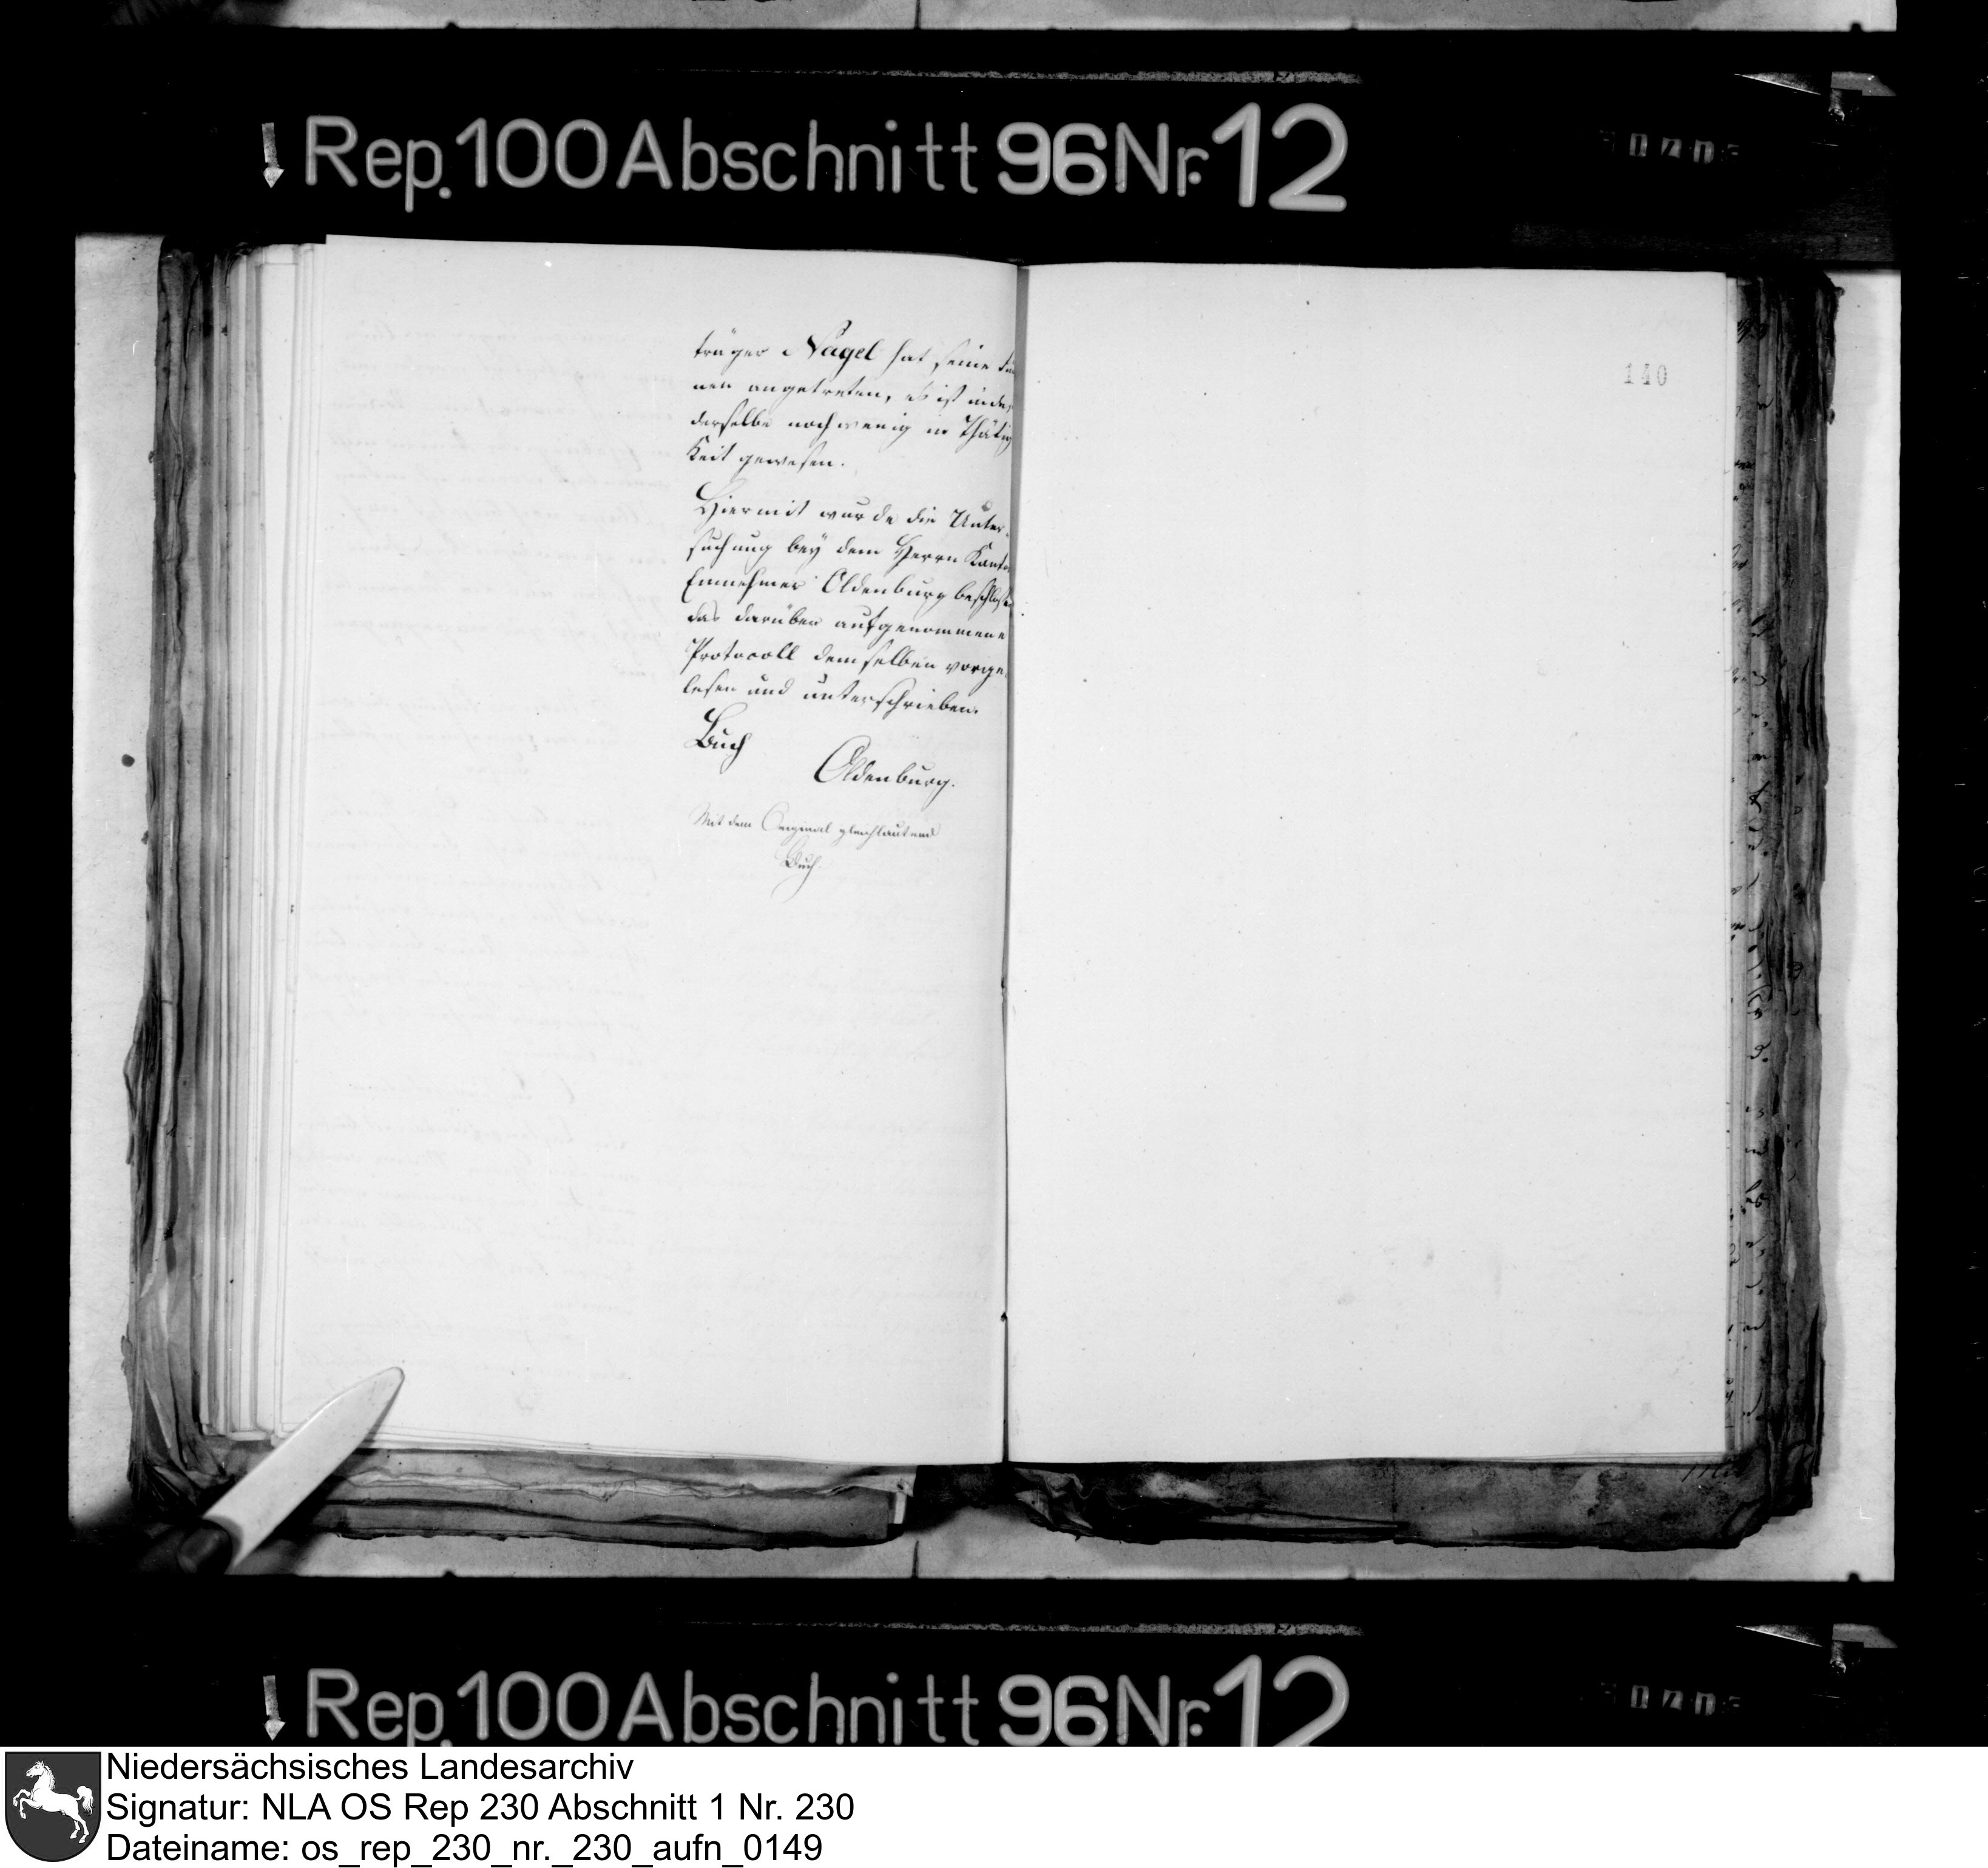 Rep. 100 Abschnitt 96 Nr. 12
träger Nagel hat seine
nen angetreten, es ist indes
derselbe noch wenig in Thätig
keit gewesen.
Hiermit wurde die Unter-
suchung bey dem Herrn Kanto
Einnehmer Oldenburg beschlosse
das darüber aufgenommene
Protocoll demselben vorge-
lesen und unterschrieben.
Buch
Oldenburg.
Mit dem Original gleichlautend
Buch.
140
Rep. 100 Abschnitt 96 Nr. 12
Niedersächsisches Landesarchiv
Signatur: NLA OS Rep 230 Abschnitt 1 Nr. 230
Dateiname: os_rep_230_nr._230_aufn_0149